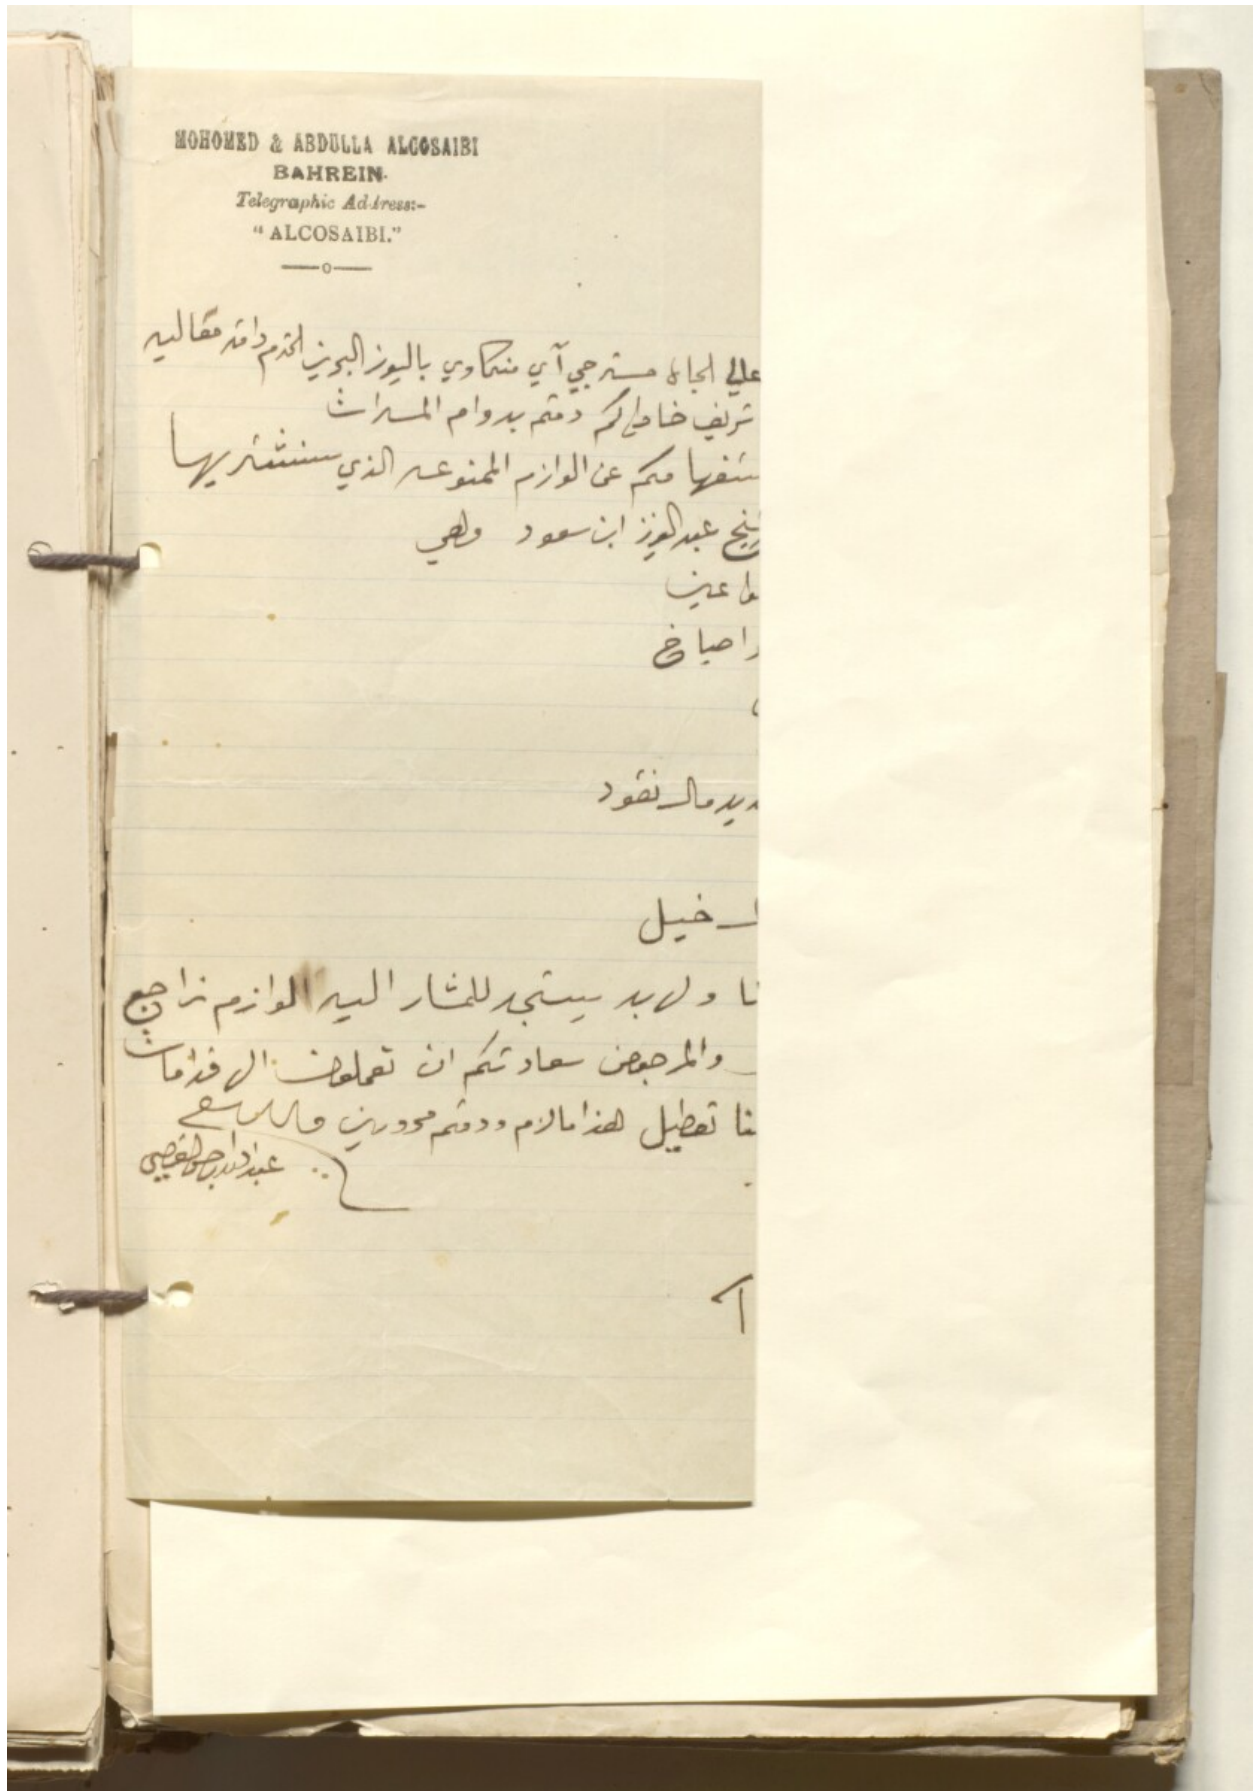 MOHOMED & ABDULLA ALCOSAIBI
BAHREIN.
Telegraphic Address:-
"ALCOSAIBI."
عالي الجاه مستر جي آي منكاوي باليوز البحرين المحترم دامت معاليه
شريف خاطركم دمتم بدوام المسرات
منكم عن الوازم الممنوعه الذي سنشتريها
عبدالعزيز ابن سعود وهي
مواعين
اصباغ
ديد مال نقود
ـل خيل
نا ولابد يستجد للمشار اليه الوازم نراجع
والمرجو من سعادتكم ان تعملون
نا تعطيل هذا مالزم ودمتم محروسين والسلام
عبدالله بن حسن القصيبي